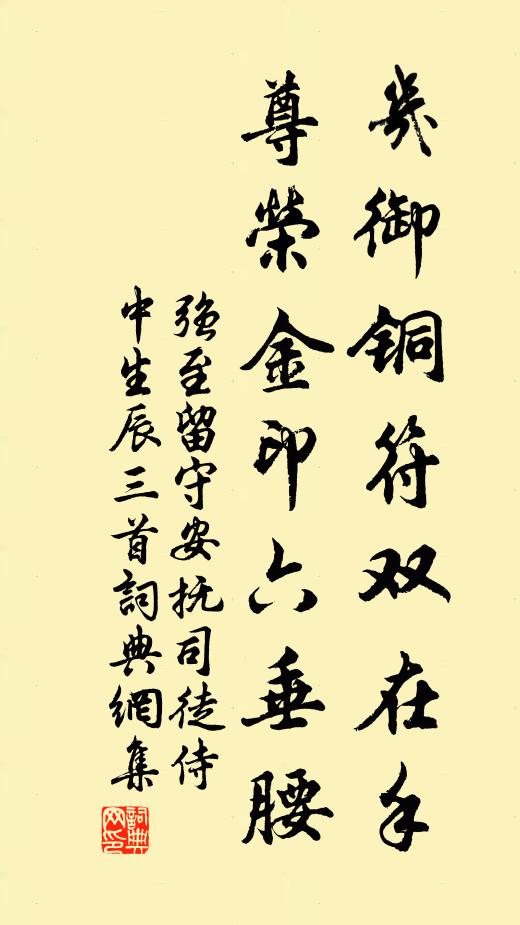 幾御銅符双在手
尊榮金印六垂腰
強至留守安抚司徒侍
中生辰三首詞典網集
詞典网印